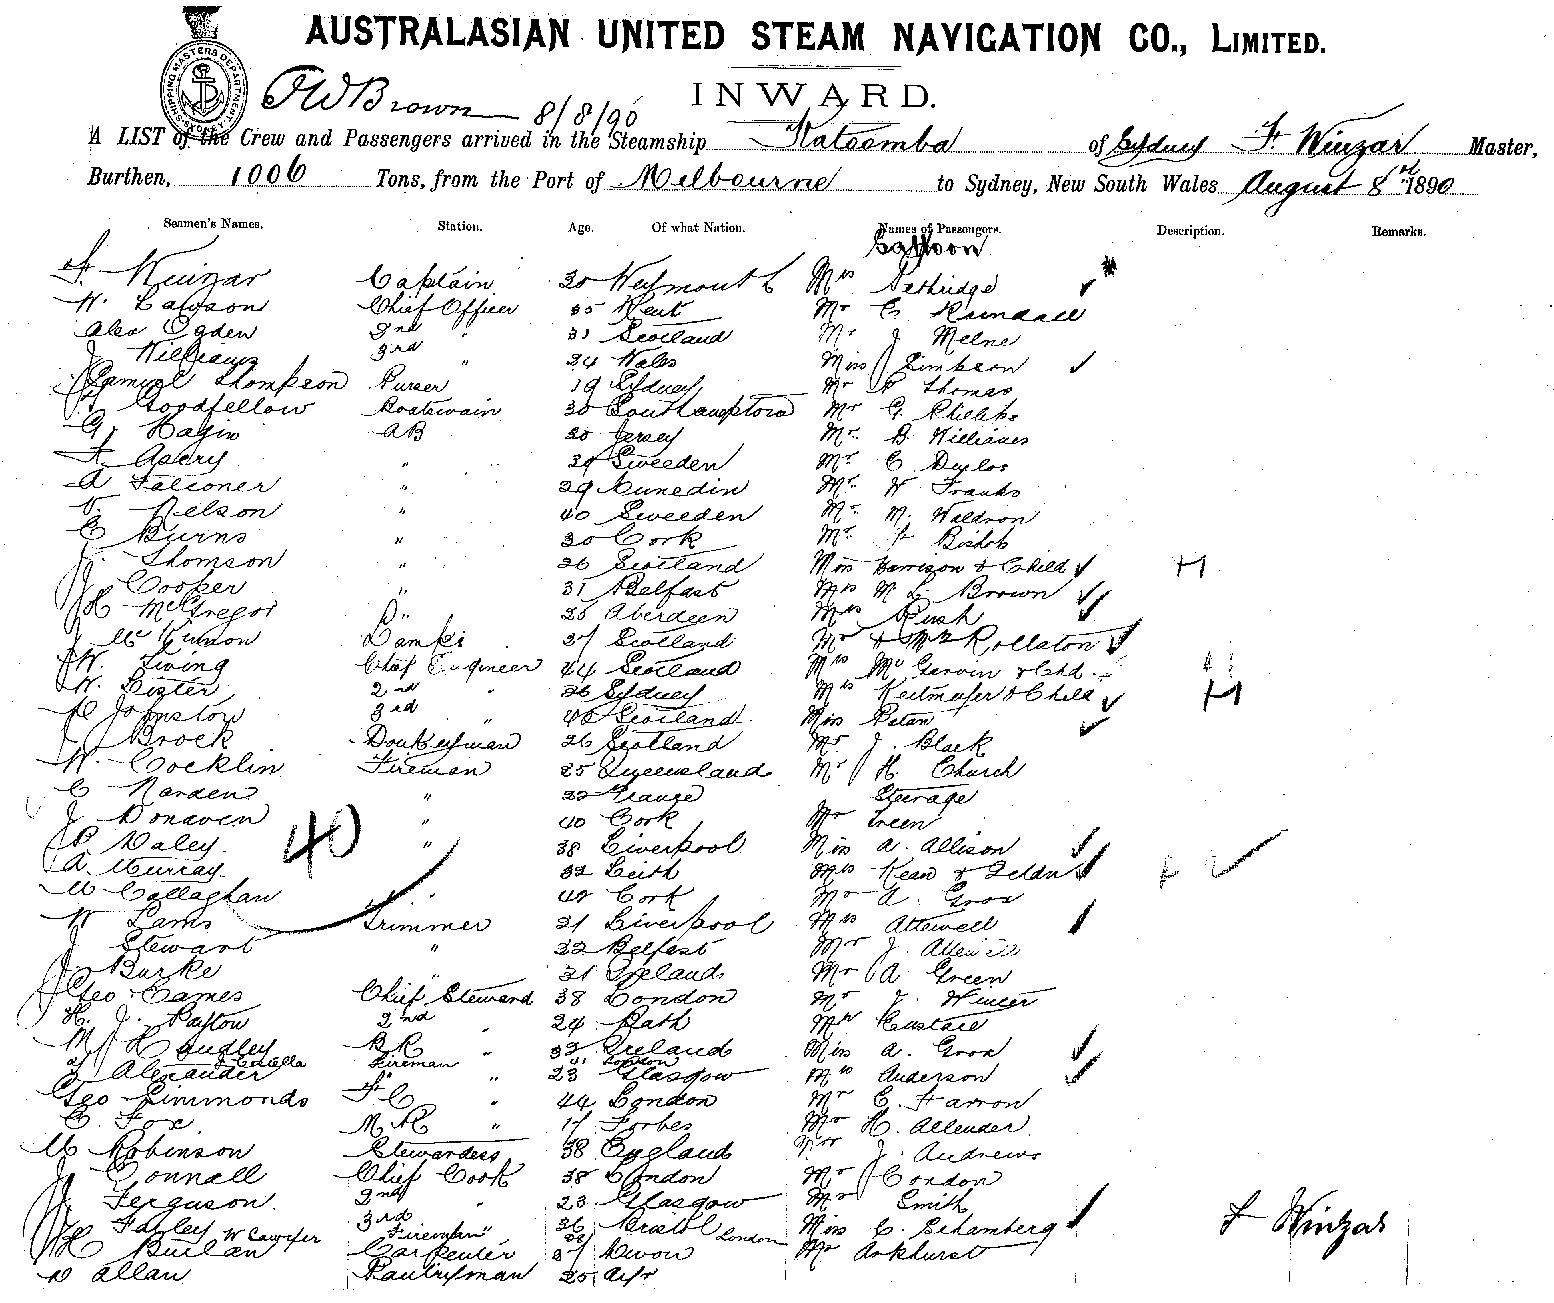 AUSTRALASIAN UNITED STEAM NAVIGATION CO., LIMITED.
SHIPPING MASTERS DEPARTMENT
FW Brown 8/8/90 INWARD.
A LIST of the Crew and Passengers arrived in the Steamship Katoomba of Sydney F. Winzar Master,
Burthen, 1006 Tons, from the Port of Melbourne to Sydney, New South Wales August 8th 1890
Seamen's Names. Station. Age. Of what Nation. Names of Passengers. Description. Remarks.
Saloon
F. Winzar Captain 30 Weymouth Mrs Tethridge
W. Lawson Chief Officer 35 Kent Mr C Randall
Alex Ogden 2nd " 31 Scotland Mr J Melne
J Williams 3rd " 24 Wales Miss Simpson
Samuel Thompson Purser 19 Sydney Mr Thomas
Goodfellow Boatswain 30 Southampton Mr G. Phelps
G. Hagin AB 20 Jersey Mr B Williams
F. Avery " 39 Sweeden Mr C
A Falconer " 29 Dunedin Mr W Franks
Nelson " 40 Sweeden Mr M. Waldron
C Burns " 30 Cork Mr Bishop
J. Thomson " 26 Scotland Miss Harrison & Child H
J Cooper " 31 Belfast Mrs M L Brown
H McGregor " 25 Aberdeen Mrs Rush
J Mc Kinnon Lamps 37 Scotland Mr & Mrs Rollaton
W. Living Chief Engineer 44 Scotland Mrs Mc Garvin & Chd
W. Lister 2nd " 26 Sydney Mrs & Child H
Johnston 3rd " 40 Scotland Miss Paton
J Brock Donkeyman 26 Scotland Mr J. Black
W. Cocklin Fireman 25 Queensland Mr H. Church
C Narden " 32 Steerage
J Donaven " 40 Cork Mr Green
P. Daley " 38 Liverpool Miss A. Allison
A. Murray 32 Leith Mrs Kean &
M Callaghan " 40 Cork Mr A. Goox
40
W Lams Trimmer 21 Liverpool Mrs Attewell
J Stewart " 32 Belfast Mr J. Allen
J Burke " 21 Ireland Mr A Green
Geo Eames Chief Steward 38 London Mr J. Winter
H. J. Payton 2nd " 24 Bath Mr Eustace
M Laudley BR " 32 Ireland Miss A. Goox
Costella Fireman London
Alexander " 23 Glasgow Mrs Anderson
Geo Simmonds FC " 44 London Mr C. Farron
C. Fox MR " 17 Forbes Mr H. Allender
M Robinson Stewardess 38 England Mr J. Andrews
J Connall Chief Cook 38 London Mr Condon
J Ferguson 2nd " 23 Glasgow Mr Smith
J Farley 3rd " 36 Bristol Miss C. Schamberg F Winzar
W Cawker Fireman London
H Burlan Carpenter 27 Devon Mr Arkhurst
D Allan Pantryman 25 Ayr